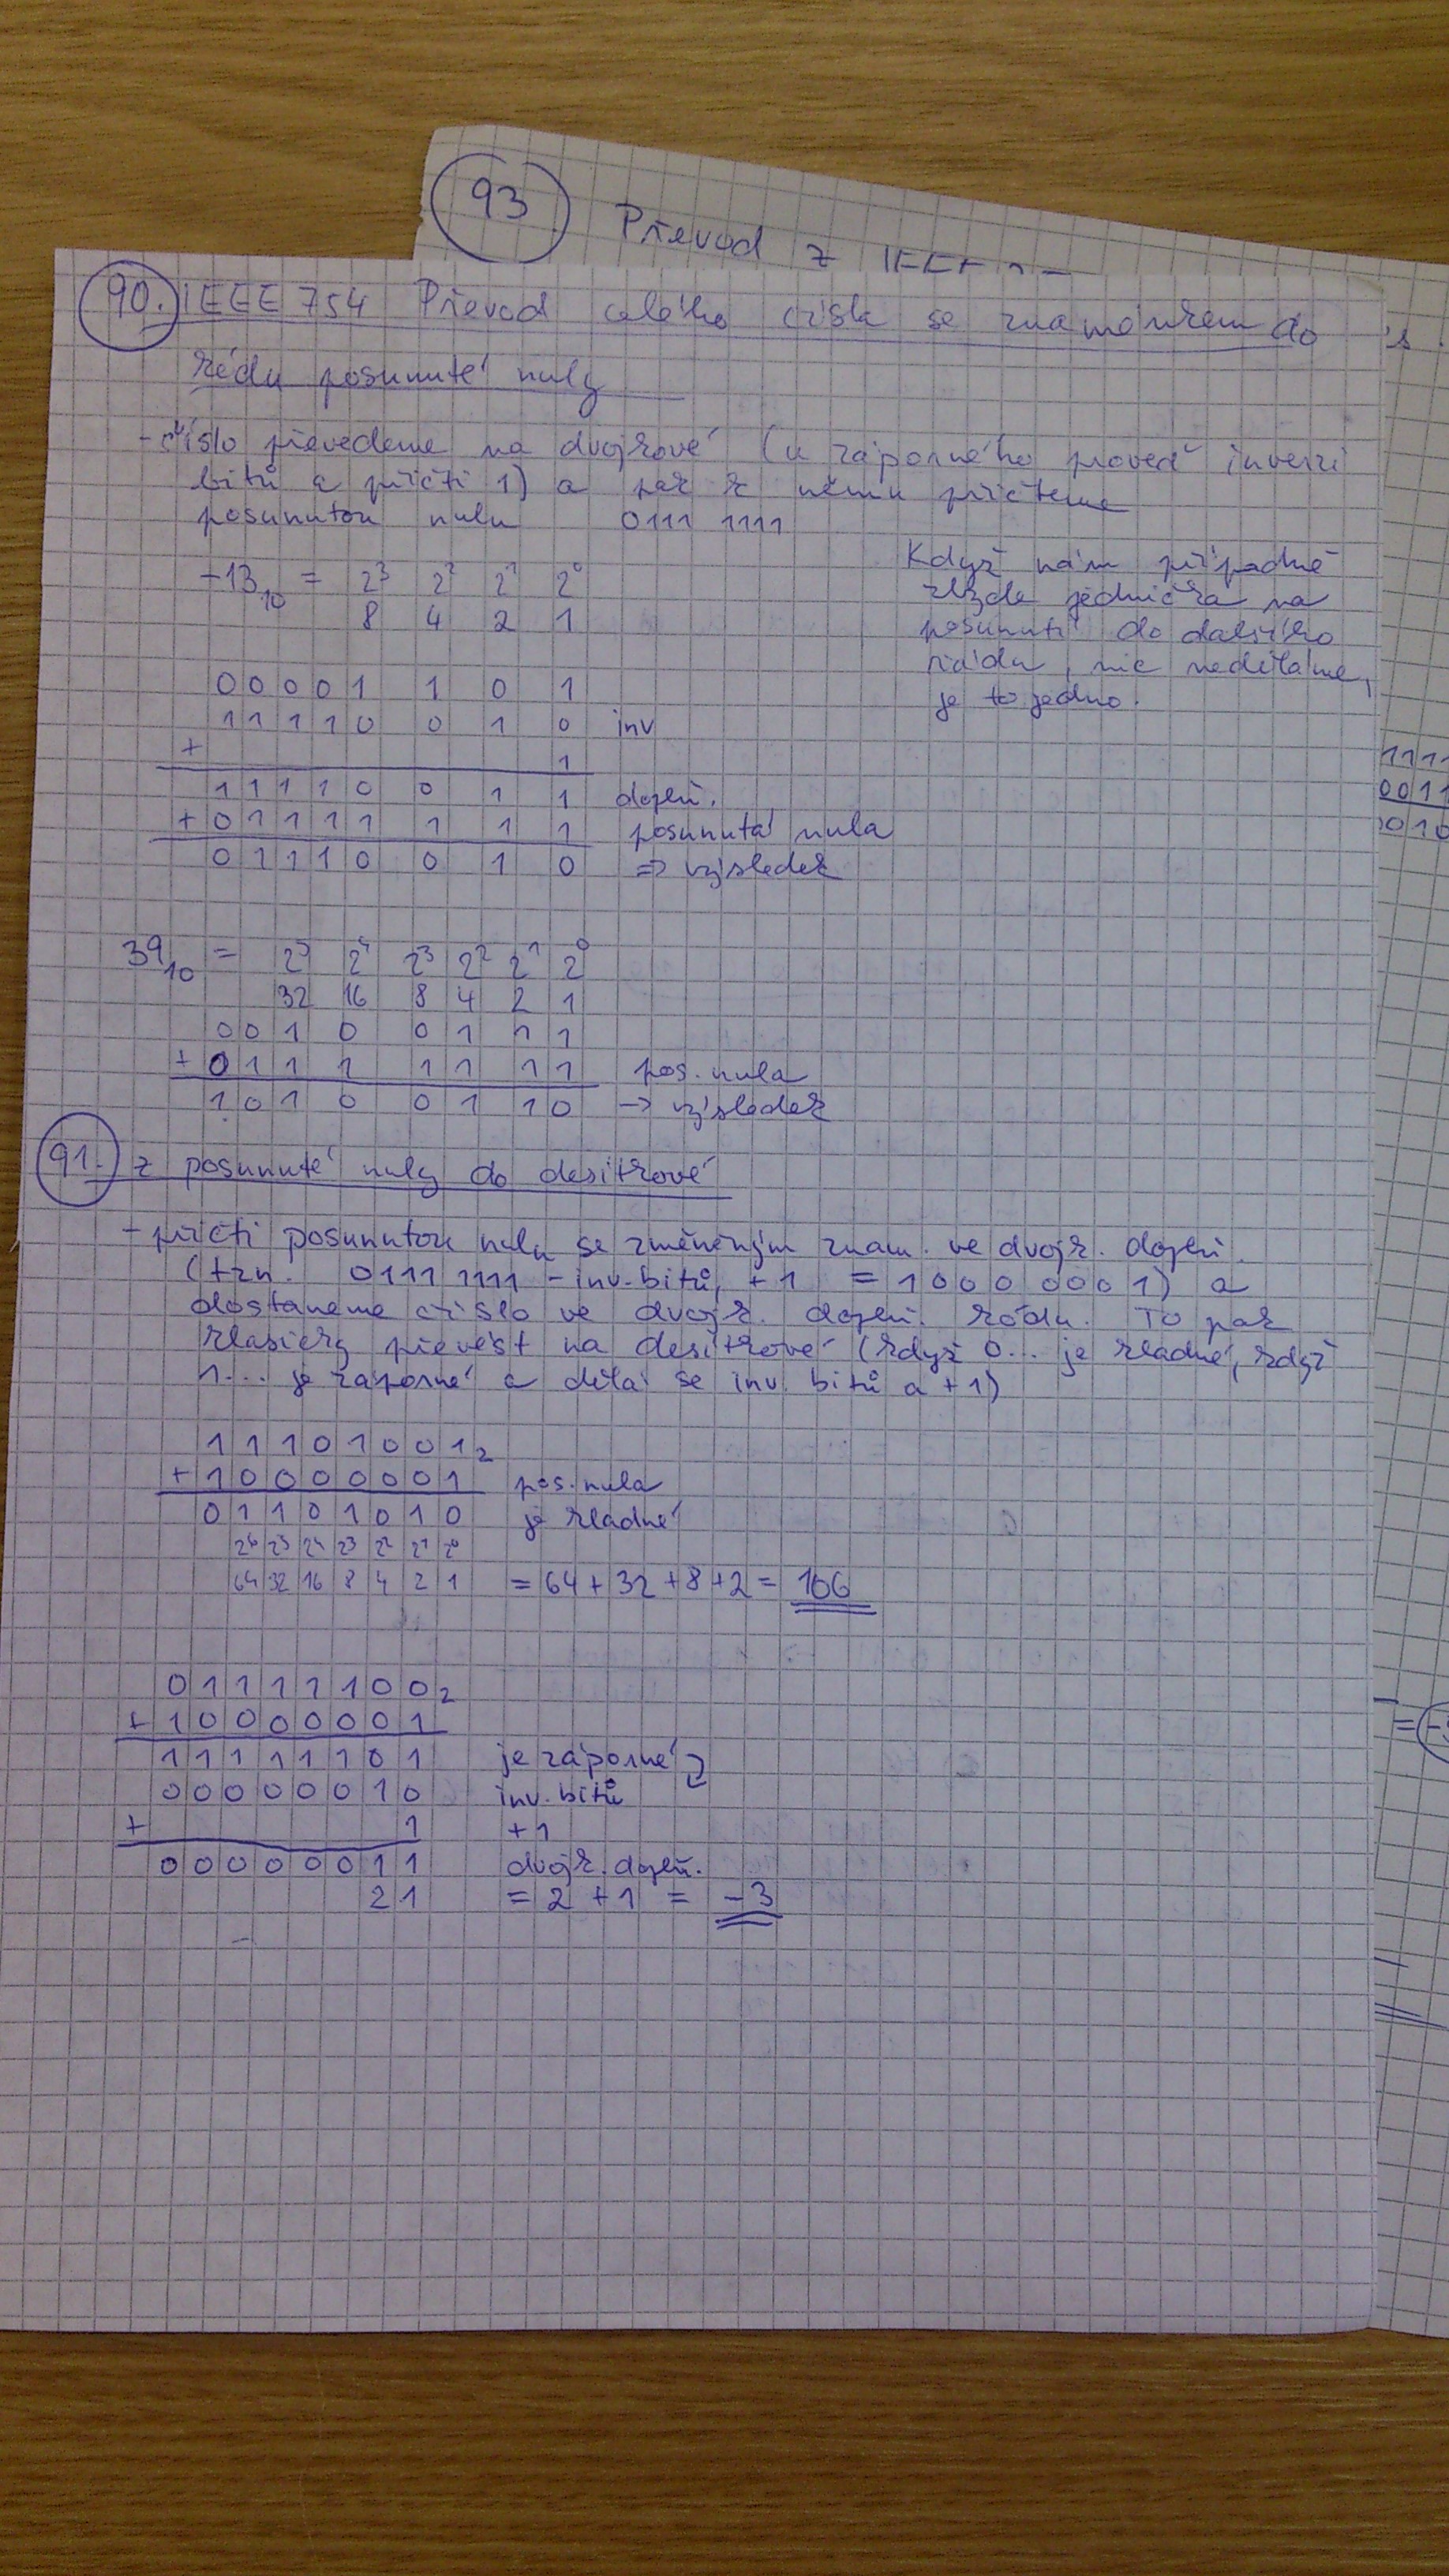 93 Převod z IEEE
90. IEEE 754 Převod celého čísla se znaménkem do
kódu posunuté nuly
- číslo převedeme na dvojkové (u záporného proveď inverzi
bitů a přičti 1) a pak k němu přičteme
posunutou nulu 0111 1111
Když nám případně
zbyde jednička na
posunutí do dalšího
řádu, nic neděláme,
je to jedno.
-13₁₀ = 2³ 2² 2¹ 2⁰
8 4 2 1
0 0 0 0 1 1 0 1
1 1 1 1 0 0 1 0 inv
+ 1
1 1 1 1 0 0 1 1 doplň.
+ 0 1 1 1 1 1 1 1 posunutá nula
0 1 1 1 0 0 1 0 => výsledek
1111
0011
0010
39₁₀ = 2⁵ 2⁴ 2³ 2² 2¹ 2⁰
32 16 8 4 2 1
0 0 1 0 0 1 1 1
+ 0 1 1 1 1 1 1 1 pos. nula
1 0 1 0 0 1 1 0 -> výsledek
91. z posunuté nuly do desítkové
- přičti posunutou nulu se změněným znam. ve dvojk. doplň.
(tzn. 0111 1111 - inv. bitů, +1 = 1000 0001) a
dostaneme číslo ve dvojk. doplň. kódu. To pak
klasicky převést na desítkové (když 0... je kladné, když
1... je záporné a dělá se inv. bitů a +1)
1 1 1 0 1 0 0 1₂
+ 1 0 0 0 0 0 0 1 pos. nula
0 1 1 0 1 0 1 0 je kladné
2⁶ 2⁵ 2⁴ 2³ 2² 2¹ 2⁰
64 32 16 8 4 2 1 = 64 + 32 + 8 + 2 = 106
0 1 1 1 1 1 0 0₂
+ 1 0 0 0 0 0 0 1
1 1 1 1 1 1 0 1 je záporné
0 0 0 0 0 0 1 0 inv. bitů
+ 1 +1
0 0 0 0 0 0 1 1 dvojk. doplň.
2 1 = 2 + 1 = -3